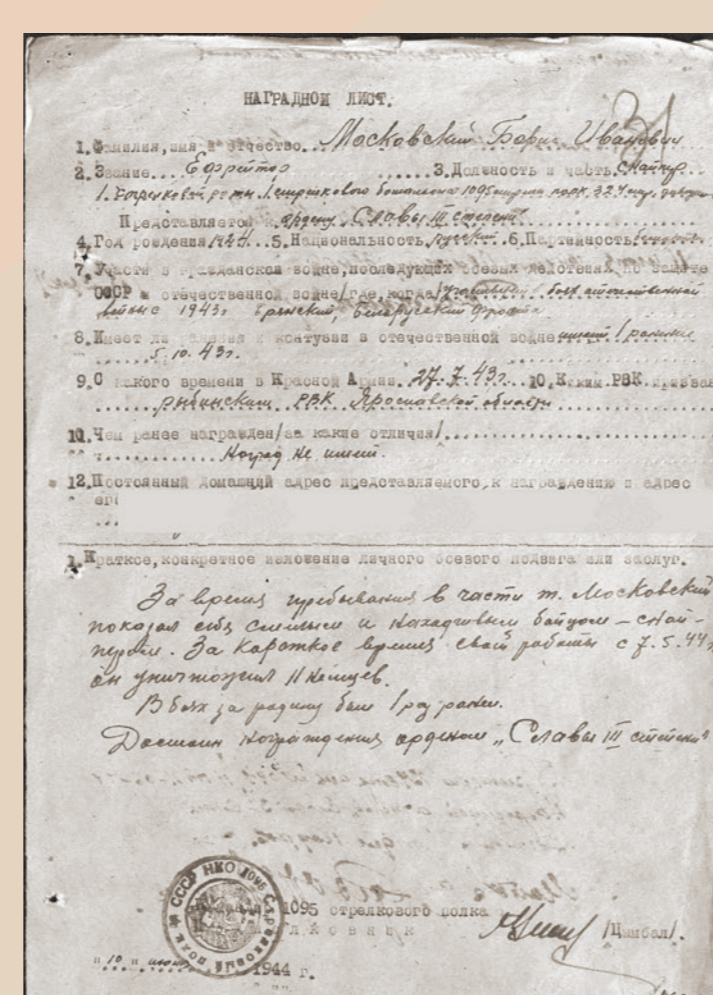 НАГРАДНОЙ ЛИСТ.
1. Фамилия, имя и отчество... Московский Борис Иванович
2. Звание... Ефрейтор ...... 3. Должность и часть. Снайпер
1 стрелковой роты 1 стрелкового батальона 1095 стрелк. полк. 324 стр. дивизии
Представляется к ордену "Славы III степени"
4. Год рождения ... 5. Национальность, русский. 6. Партийность
7. Участие в гражданской войне, последующих боевых действиях по защите
СССР и отечественной войне/где, когда/ участвовал в боях отечественной
войны с 1943г Брянский, Белорусский фронта.
8. Имеет ли ранения и контузии в отечественной войне имеет 1 ранение
5.10.43г.
9. С какого времени в Красной Армии. 27.7.43г... 10. Каким РВК. призван
...... Рыбинским РВК Ярославской области
11. Чем ранее награжден/за какие отличия/
...... Наград не имеет.
12. Постоянный домашний адрес представляемого, к награждению и адрес
его
1. Краткое, конкретное изложение личного боевого подвига или заслуг.
За время пребывания в части т. Московский
показал себя смелым и находчивым бойцом – снай-
пером. За кароткое время своей работы с 7.5.44г
он уничтожил 11 немцев.
В боях за родину был 1 раз ранен.
Достоин награждения орденом „Славы III степени"
СССР НКО 1095 Стрелковый полк
1095 стрелкового полка
полковник /Цимбал/.
"10" июня 1944 г.